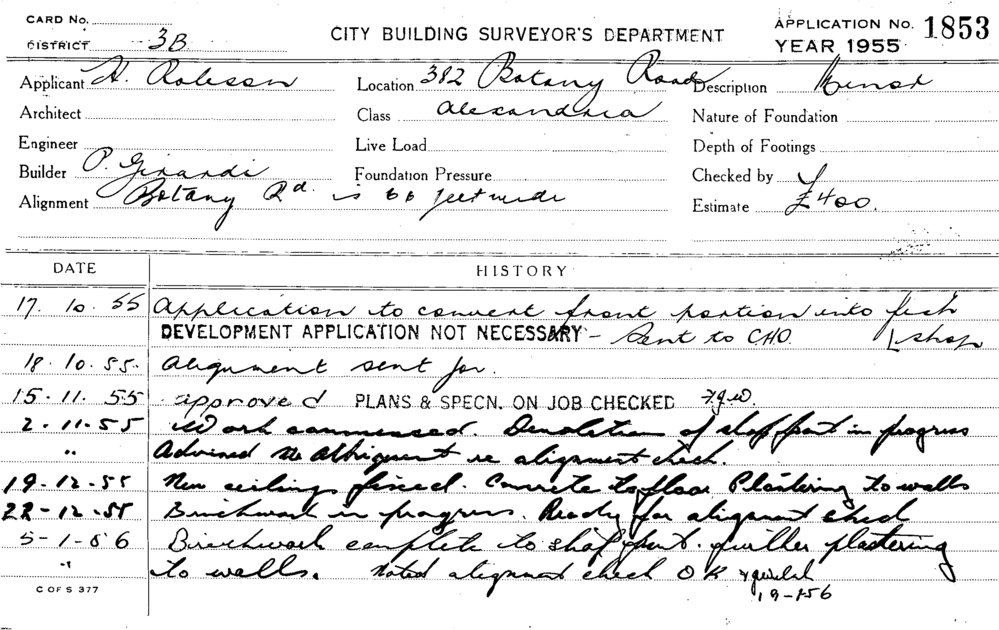 CARD No.
DISTRICT 3B
CITY BUILDING SURVEYOR'S DEPARTMENT
APPLICATION No. 1853
YEAR 1955
Applicant H. Robeson Location 382 Botany Road Description Minor
Architect Class Alexandria Nature of Foundation
Engineer Live Load Depth of Footings
Builder P. Girardi Foundation Pressure Checked by
Alignment Botany Rd. is 66 feet wide Estimate £400.
DATE HISTORY
17. 10. 55 Application to convert front portion into fish
DEVELOPMENT APPLICATION NOT NECESSARY - Sent to CHO. shop
18.10.55. Alignment sent for.
15.11.55 approved PLANS & SPECN. ON JOB CHECKED
2.11.55 Work commenced. Demolition of shop front in progress
" Advised re alignment check.
19-12-55 New ceilings fixed. Concrete to floor Plastering to walls
22-12-55 Brickwork in progress. Ready for alignment check
5-1-56 Brickwork complete to shop front. further plastering
" to walls. Noted alignment check OK
19-1-56
C OF S 377